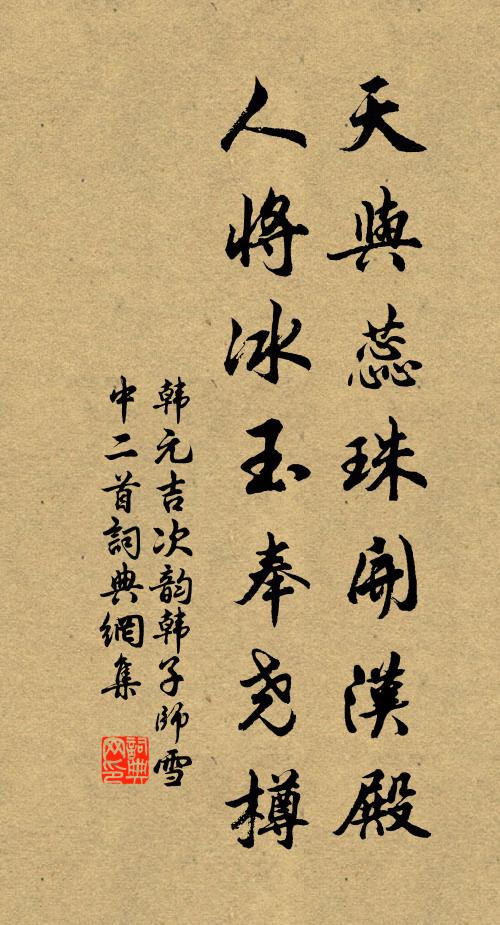 天與蕊珠開漢殿
人將冰玉奉尧樽
韩元吉次韵韩子師雪
中二首詞典網集
詞典网印